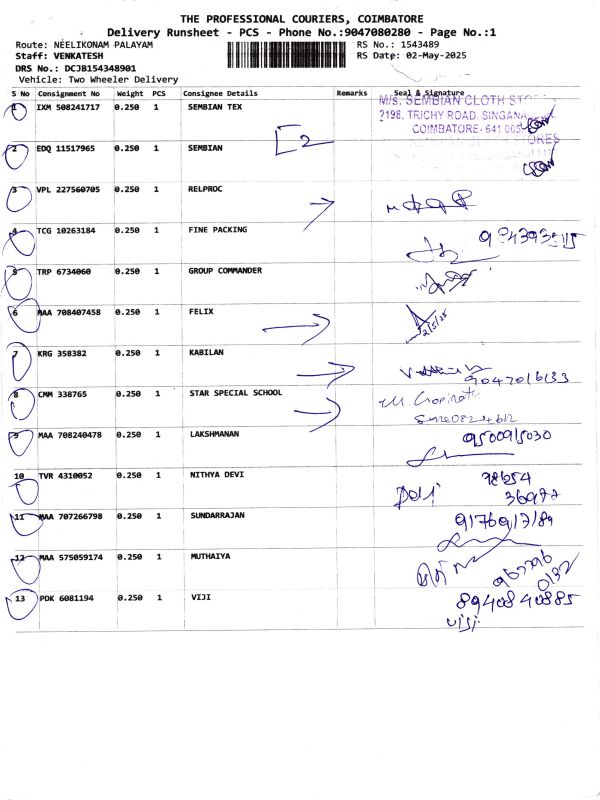 THE PROFESSIONAL COURIERS, COIMBATORE
Delivery Runsheet - PCS - Phone No.:9047080280 - Page No.:1
Route: NEELIKONAM PALAYAM RS No.: 1543489
Staff: VENKATESH RS Date: 02-May-2025
DRS No.: DCJB154348901
Vehicle: Two Wheeler Delivery
S No Consignment No Weight PCS Consignee Details Remarks Seal & Signature
M/S. SEMBIAN CLOTH
1 IXM 508241717 0.250 1 SEMBIAN TEX
2198, TRICHY ROAD,
COIMBATORE- 641 005
2 EDQ 11517965 0.250 1 SEMBIAN
2
3 VPL 227560705 0.250 1 RELPROC
4 TCG 10263184 0.250 1 FINE PACKING
5 TRP 6734060 0.250 1 GROUP COMMANDER
6 MAA 708407458 0.250 1 FELIX
2/5/25
7 KRG 358382 0.250 1 KABILAN
8 CMM 338765 0.250 1 STAR SPECIAL SCHOOL
9 MAA 708240478 0.250 1 LAKSHMANAN
9500915030
10 TVR 4310052 0.250 1 NITHYA DEVI
11 MAA 707266798 0.250 1 SUNDARRAJAN
12 MAA 575059174 0.250 1 MUTHAIYA
13 PDK 6081194 0.250 1 VIJI
8940840885
viji